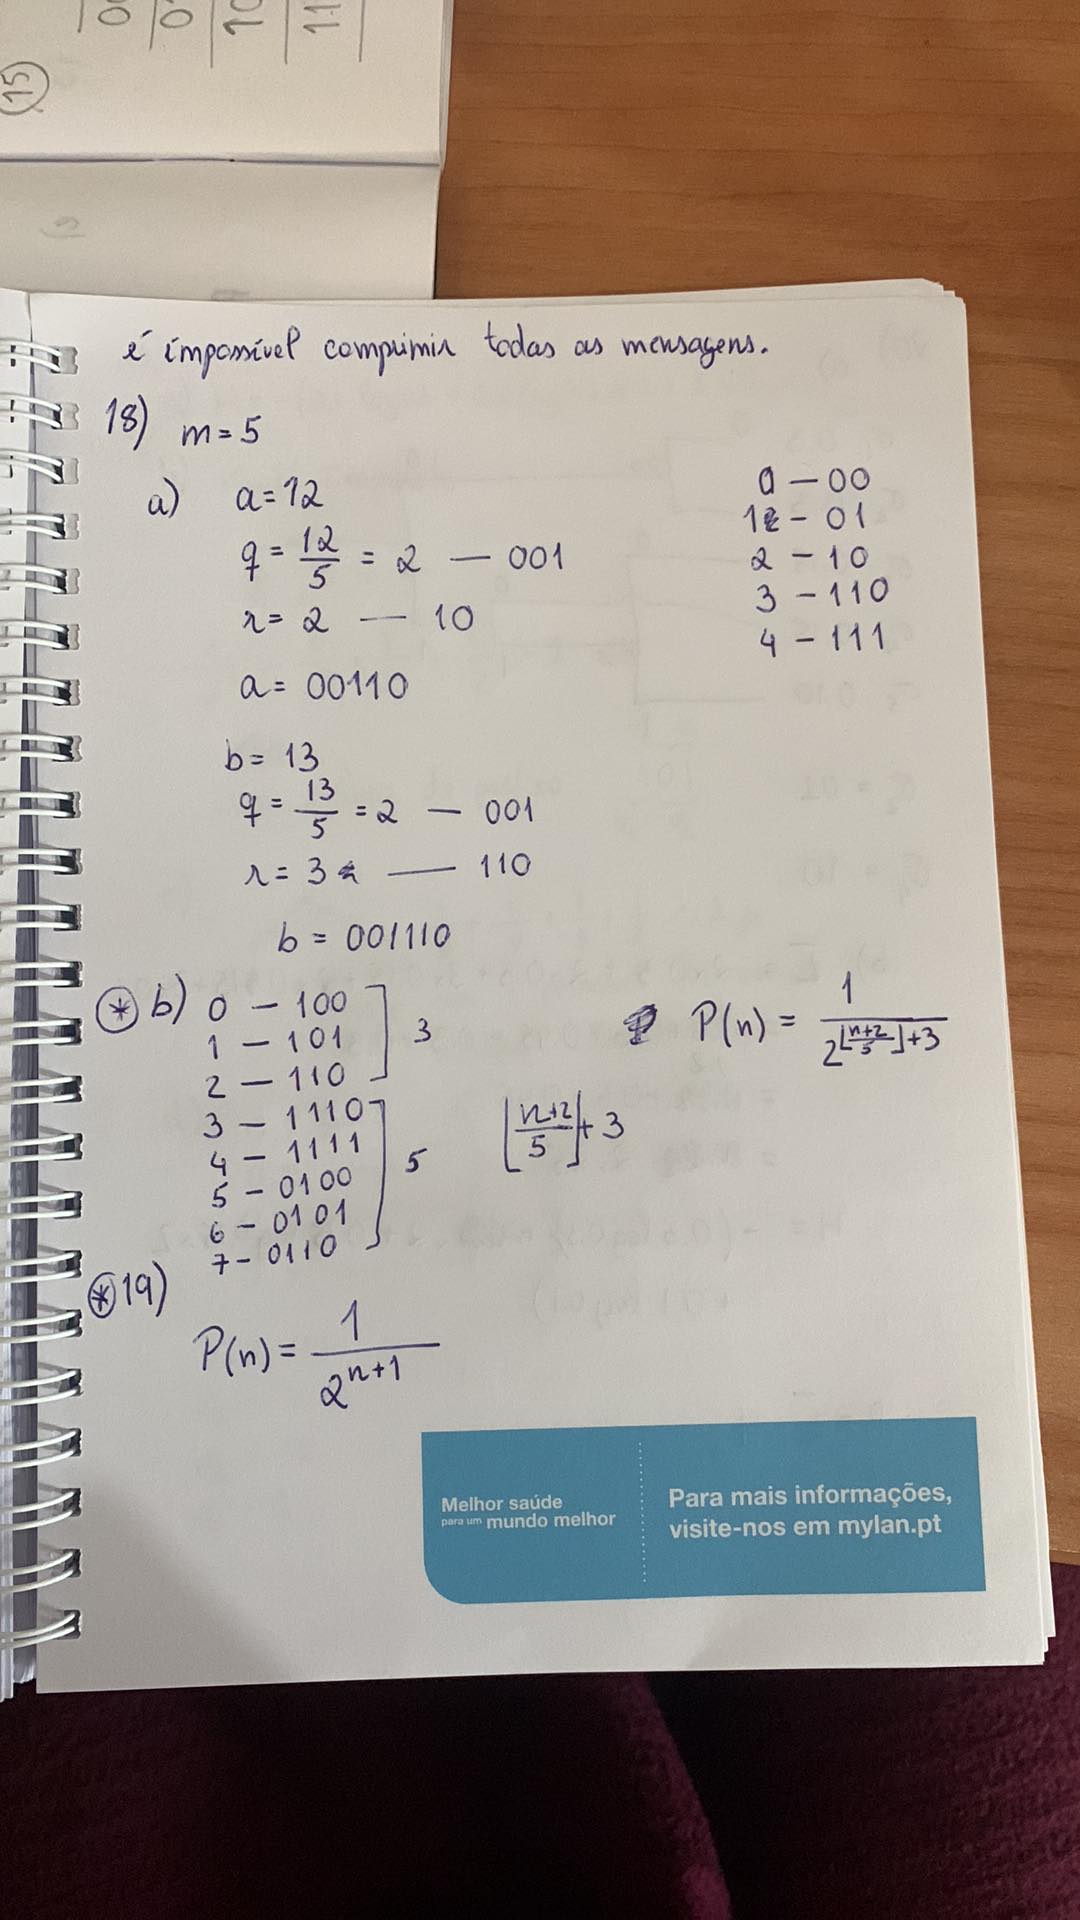 15
00
01
10
11
é impossível comprimir todas as mensagens.
18) m = 5
a) a = 12
q = 12/5 = 2 — 001
r = 2 — 10
a = 00110
0 — 00
1 — 01
2 — 10
3 — 110
4 — 111
b = 13
q = 13/5 = 2 — 001
r = 3 — 110
b = 001110
* b) 0 — 100
1 — 101
2 — 110
3
3 — 1110
4 — 1111
5 — 0100
6 — 0101
7 — 0110
5
⌊(n+2)/5⌋ + 3
P(n) = 1/2^(⌊(n+2)/5⌋+3)
* 19)
P(n) = 1/2^(n+1)
Melhor saúde
para um mundo melhor
Para mais informações,
visite-nos em mylan.pt